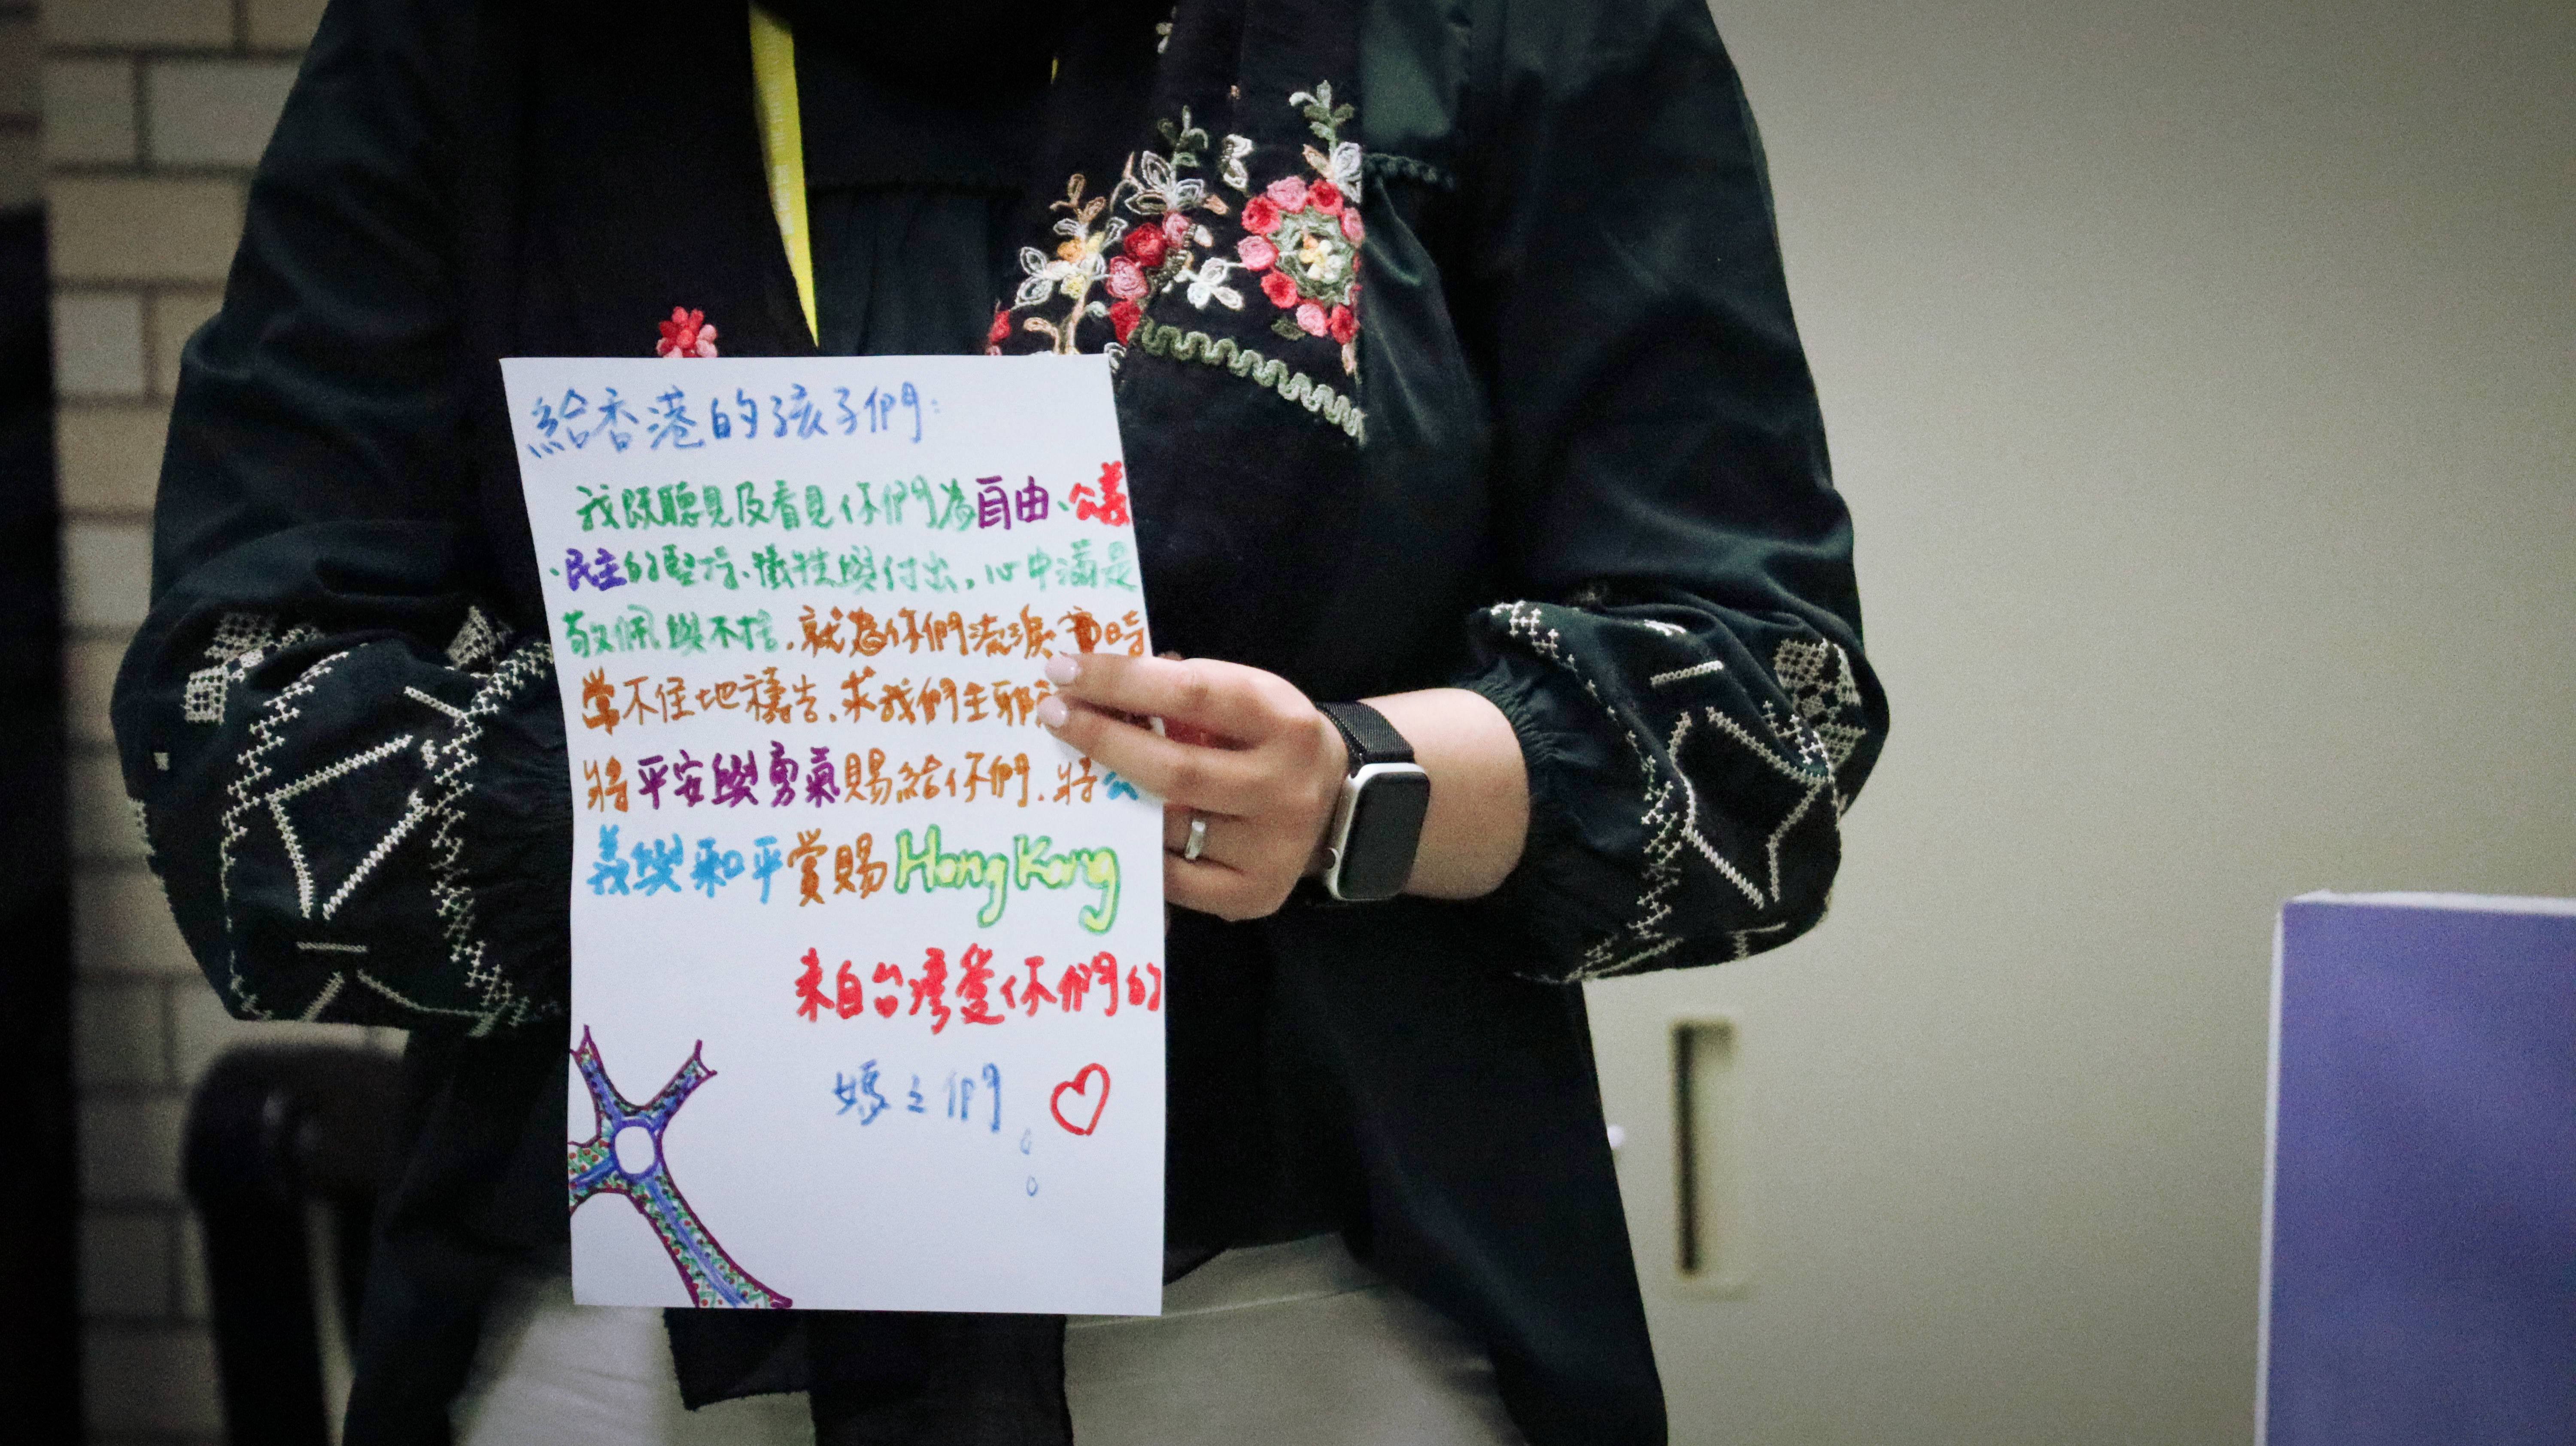 給香港的孩子們:
我既聽見及看見你們為自由、公義
、民主的堅持、犧牲與付出,心中滿是
敬佩與不捨,就為你們流淚、時
常不住地禱告,求我們主耶
將平安與勇氣賜給你們,將公
義與和平賞賜Hong Kong
來自台灣愛你們的
媽之們